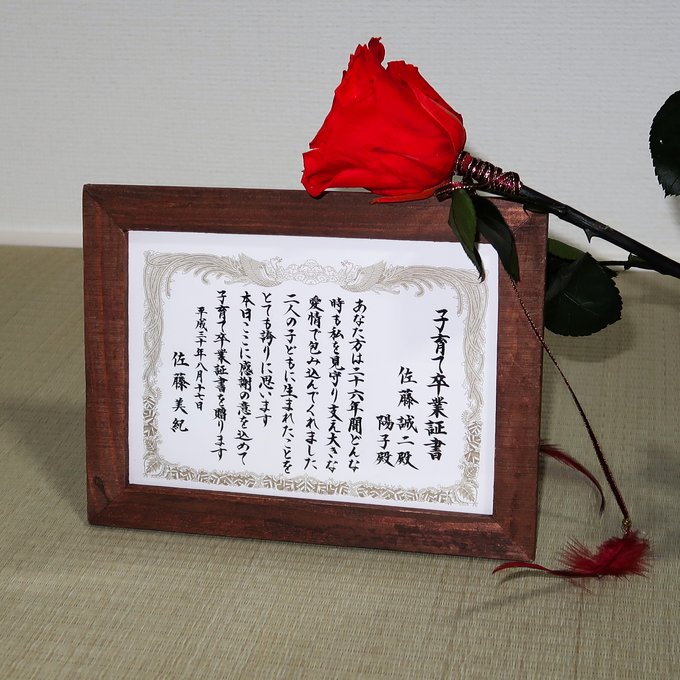 子育て卒業証書
佐藤誠二殿
陽子殿
あなた方は二十六年間どんな
時も私を見守り支え大きな
愛情で包み込んでくれました
二人の子どもに生まれたことを
とても誇りに思います
本日ここに感謝の意を込めて
子育て卒業証書を贈ります
平成三十年八月十七日
佐藤美紀